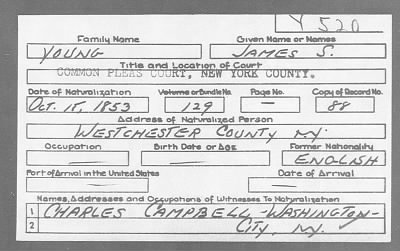 Y 520
Family Name Given Name or Names
YOUNG JAMES S.
Title and Location of Court
COMMON PLEAS COURT, NEW YORK COUNTY.
Date of Naturalization Volume or Bundle No. Page No. Copy of Record No.
OCT. 15, 1853 129 — 88
Address of Naturalized Person
WESTCHESTER COUNTY N.Y.
Occupation Birth Date or Age Former Nationality
— — ENGLISH
Port of Arrival in the United States Date of Arrival
— —
Names, Addresses and Occupations of Witnesses To Naturalization
1 CHARLES CAMPBELL - WASHINGTON -
2 CITY, N.Y.